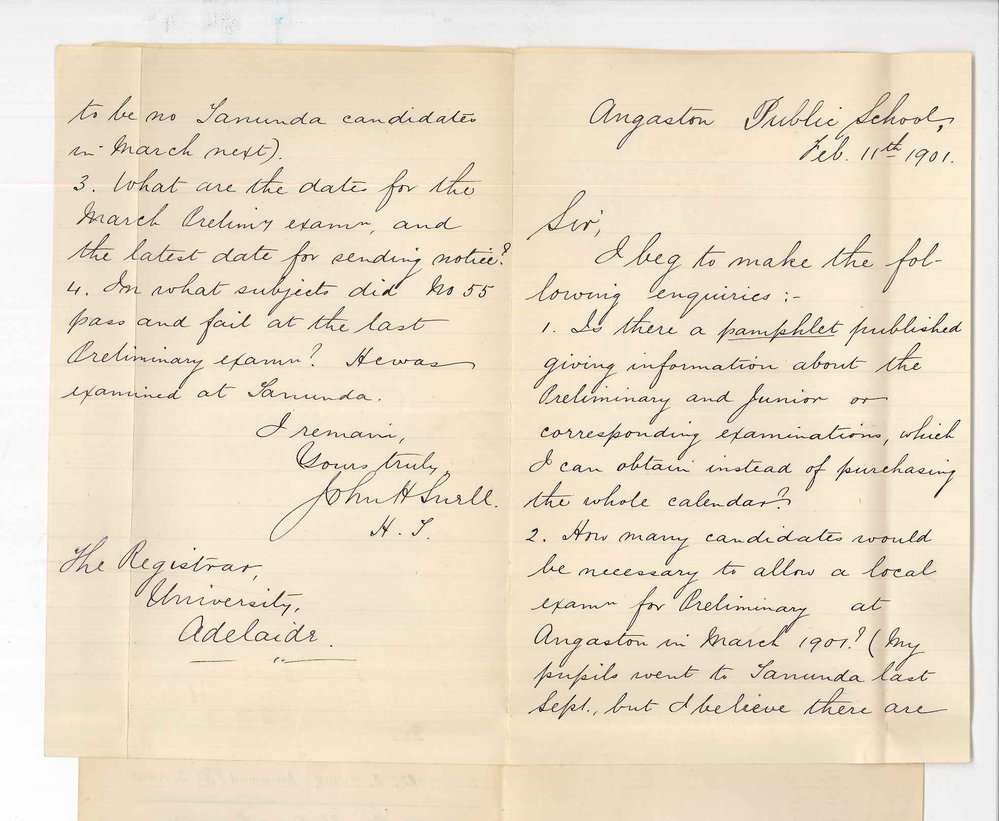 Angaston Public School,
Feb. 11th 1901.
Sir,
I beg to make the fol-
lowing enquiries:-
1. Is there a pamphlet published
giving information about the
Preliminary and Junior or
corresponding examinations, which
I can obtain instead of purchasing
the whole calendar?
2. How many candidates would
be necessary to allow a local
examn for Preliminary at
Angaston in March 1901? (My
pupils went to Tanunda last
Sept., but I believe there are
to be no Tanunda candidates
in March next).
3. What are the dates for the
March Prelimy examn, and
the latest date for sending notice?
4. In what subjects did No 55
pass and fail at the last
Preliminary examn? He was
examined at Tanunda.
I remain,
Yours truly,
John H Snell.
H. T.
The Registrar,
University,
Adelaide.